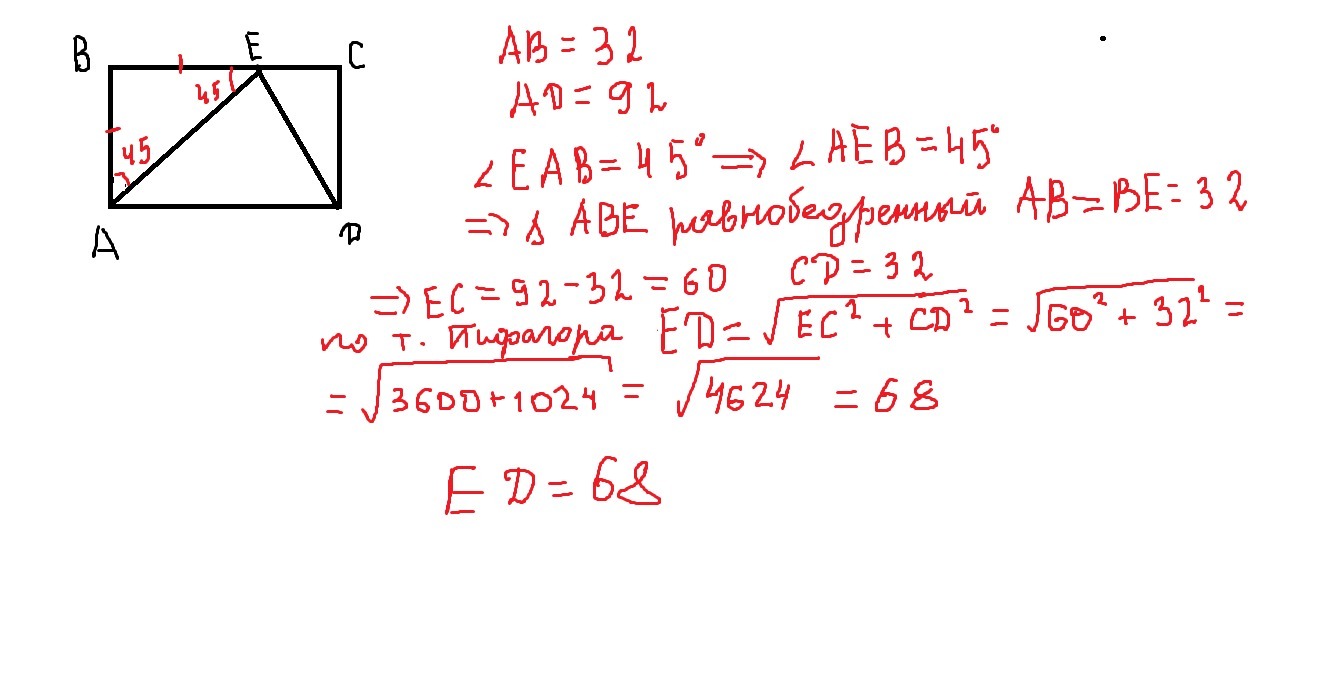 B E C
45
45
A D
AB = 32
AD = 92
∠EAB = 45° => ∠AEB = 45°
=> Δ ABE равнобедренный AB = BE = 32
=> EC = 92 - 32 = 60 CD = 32
по т. Пифагора ED = √(EC² + CD²) = √(60² + 32²) =
= √(3600 + 1024) = √4624 = 68
ED = 68